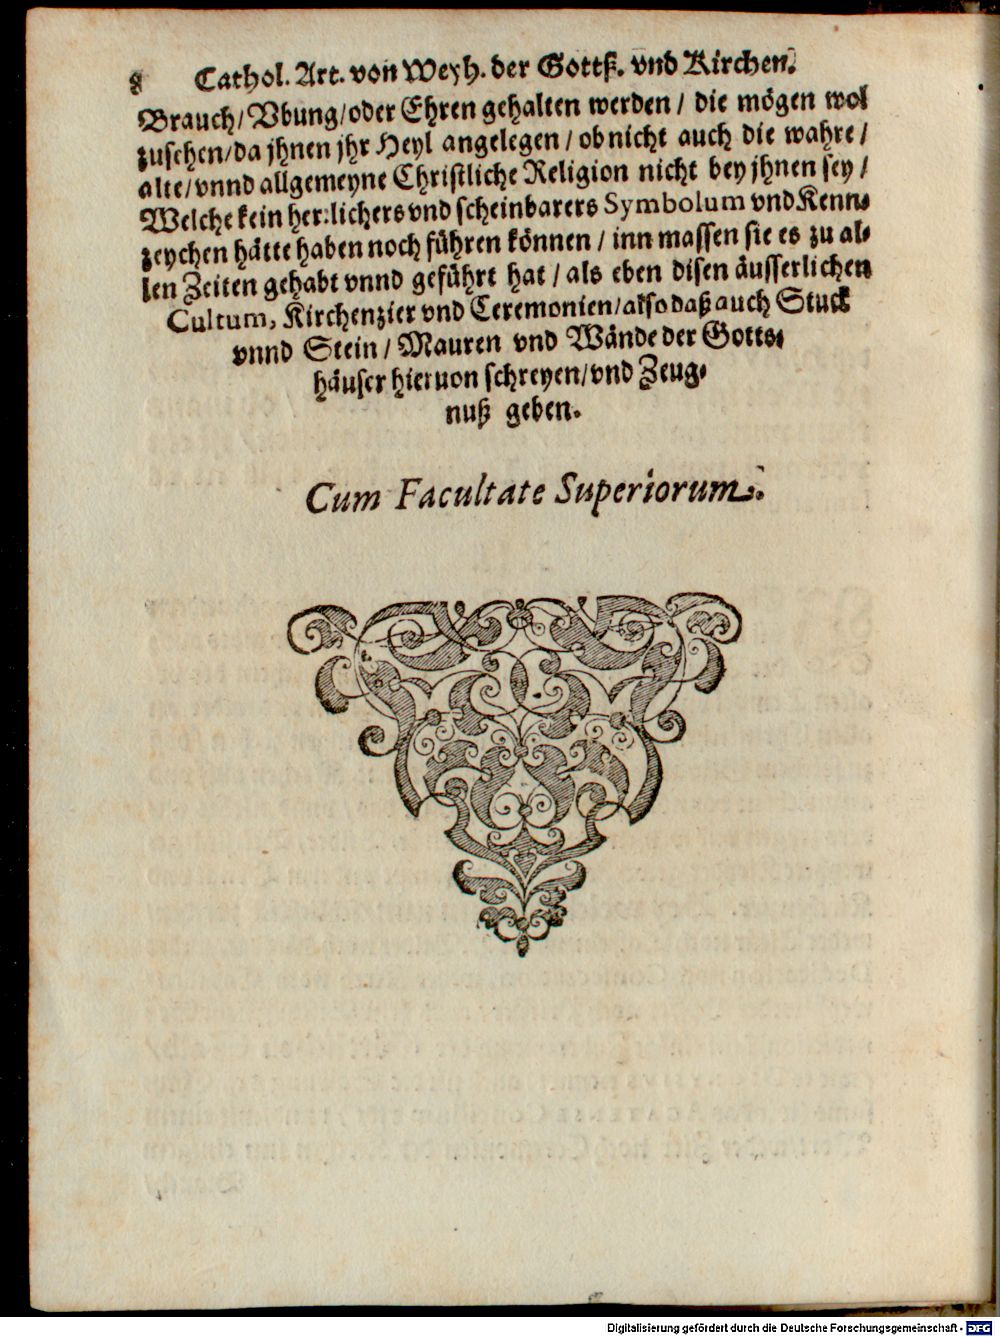 8 Cathol. Art. von Weyh. der Gottß. vnd Kirchen.
Brauch/Vbung/oder Ehren gehalten werden/ die mögen wol
zusehen/da jhnen jhr Heyl angelegen/ob nicht auch die wahre/
alte/vnnd allgemeyne Christliche Religion nicht bey jhnen sey/
Welche kein herrlichers vnd scheinbarers Symbolum vnd Kenn-
zeychen hätte haben noch führen können/ inn massen sie es zu al-
len Zeiten gehabt vnnd geführt hat/als eben disen äusserlichen
Cultum, Kirchenzier vnd Ceremonien/also daß auch Stuck
vnnd Stein/Mauren vnd Wände der Gotts-
häuser hieruon schreyen/vnd Zeug-
nuß geben.
Cum Facultate Superiorum.
Digitalisierung gefördert durch die Deutsche Forschungsgemeinschaft - DFG